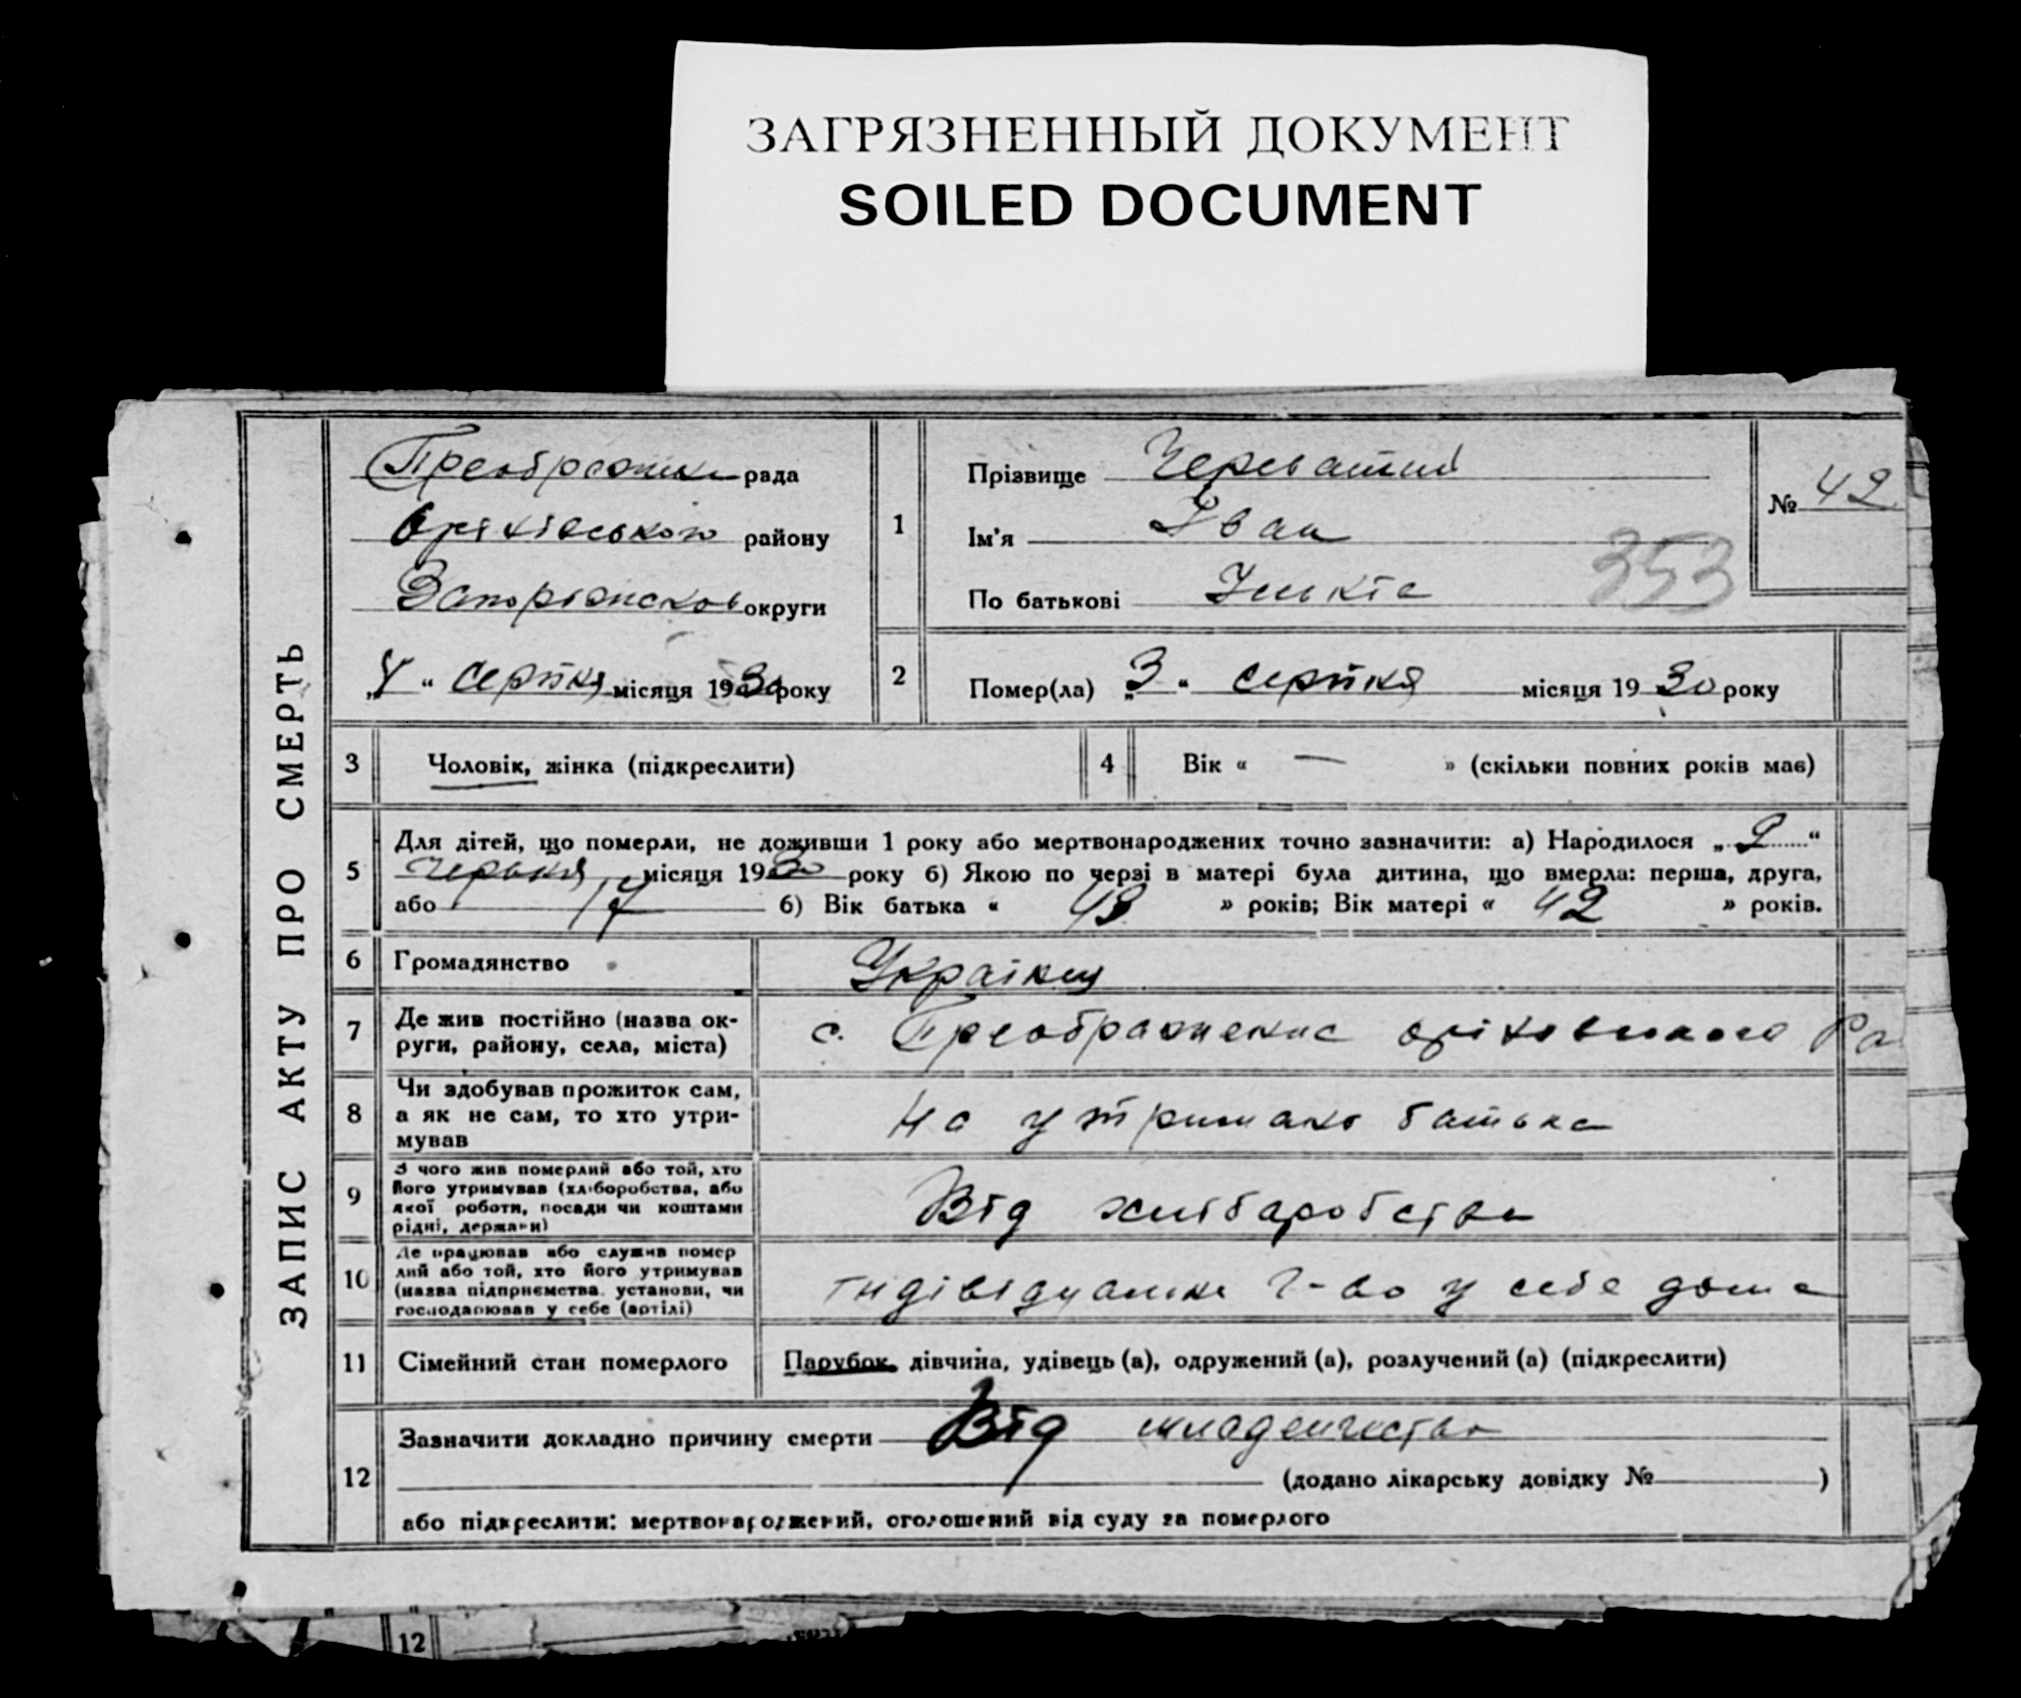 ЗАГРЯЗНЕННЫЙ ДОКУМЕНТ
SOILED DOCUMENT
ЗАПИС АКТУ ПРО СМЕРТЬ
рада
району
округи
„4“ серпня місяця 1930 року
1
Прізвище Череватий
Ім'я Іван
По батькові
№ 42
353
2
Помер(ла) „3“ серпня місяця 1930 року
3
Чоловік, жінка (підкреслити)
4
Вік « — » (скільки повних років має)
5
Для дітей, що померли, не доживши 1 року або мертвонароджених точно зазначити: а) Народилося „2“
червня місяця 1930 року б) Якою по черзі в матері була дитина, що вмерла: перша, друга,
або б) Вік батька « 43 » років; Вік матері « 42 » років.
6
Громадянство
Українц
7
Де жив постійно (назва ок-
руги, району, села, міста)
с. Преображенка оріховського Ра
8
Чи здобував прожиток сам,
а як не сам, то хто утри-
мував
На утримано батька
9
З чого жив померлий або той, хто
його утримував (хліборобства, або
якої роботи, посади чи коштами
рідні, держави)
Від хлібаробства
10
Де працював або служив помер
лий або той, хто його утримував
(назва підприємства, установи, чи
господарював у себе (артілі)
г-во у себе дома
11
Сімейний стан померлого
Парубок, дівчина, удівець (а), одружений (а), розлучений (а) (підкреслити)
12
Зазначити докладно причину смерти Від младенчества
(додано лікарську довідку № )
або підкреслити: мертвонароджений, оголошений від суду за померлого
12